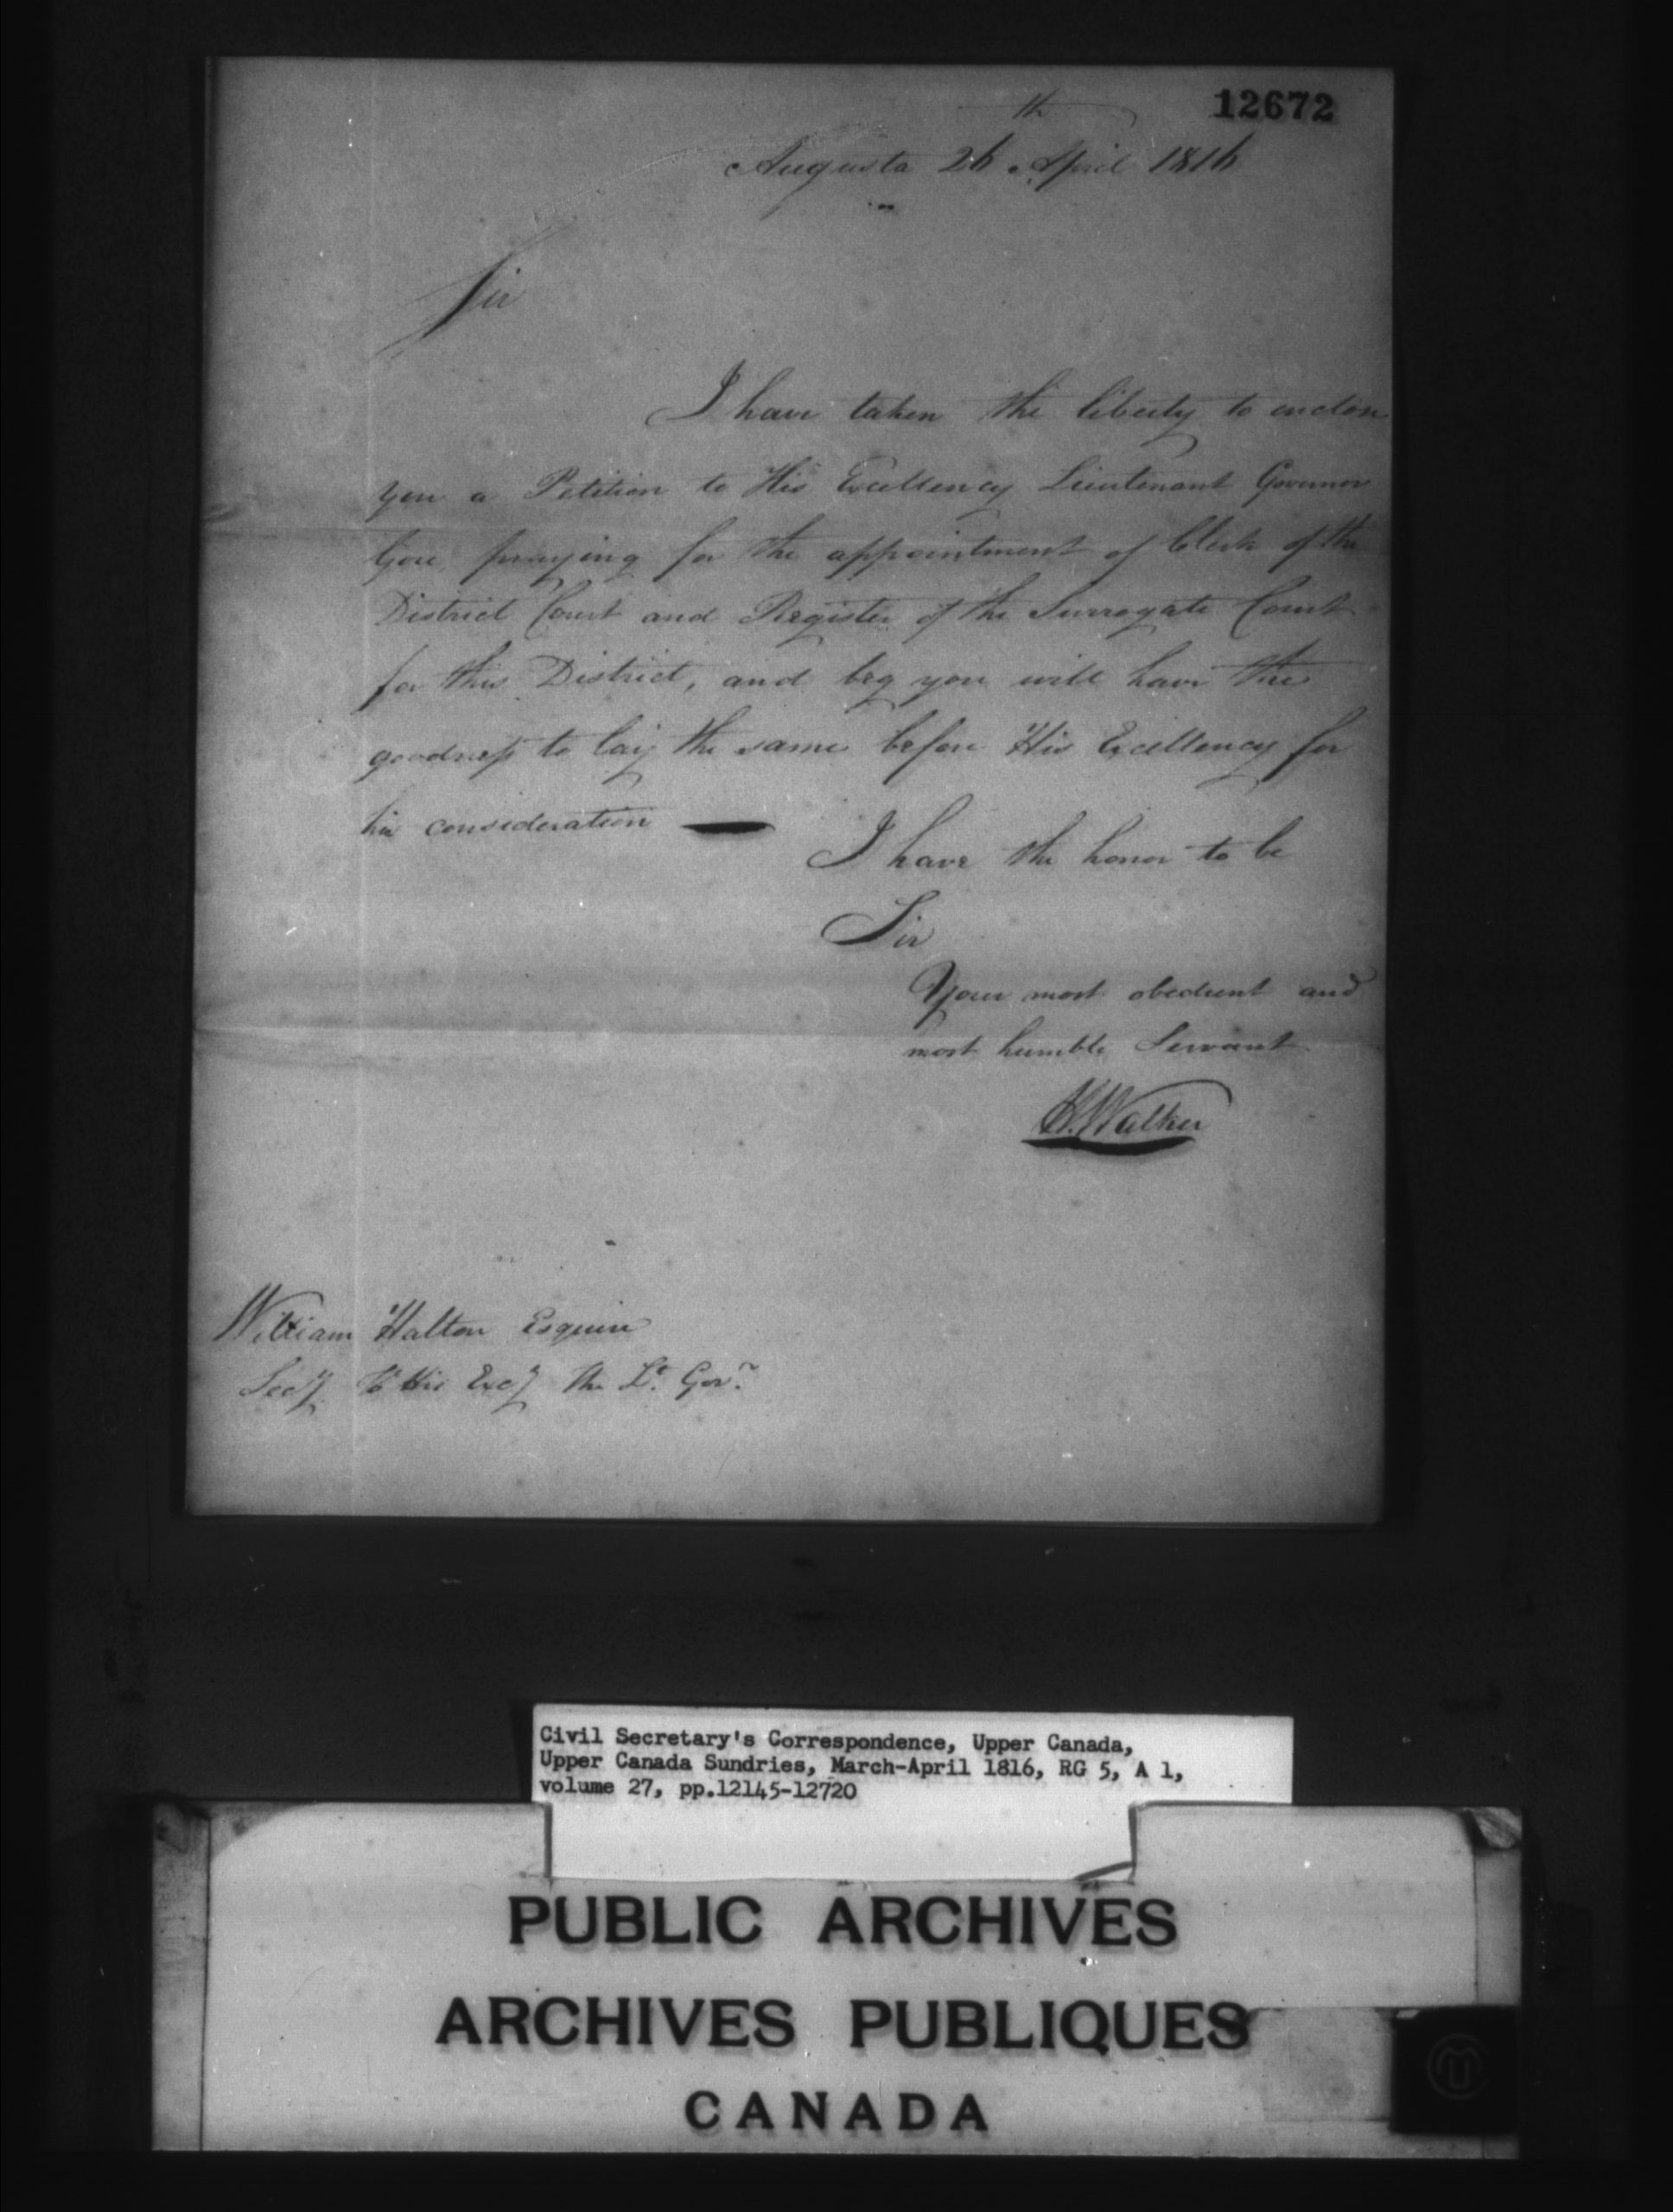 12672
Augusta 26th April 1816
Sir
I have taken the liberty to enclose
you a Petition to His Excellency Lieutenant Governor
Gore praying for the appointment of Clerk of the
District Court and Register of the Surrogate Court
for this District, and beg you will have the
goodness to lay the same before His Excellency for
his consideration —
I have the honor to be
Sir
Your most obedient and
most humble Servant
H. Walker
William Halton Esquire
Secy to His Excy the Lt. Govr.
Civil Secretary's Correspondence, Upper Canada,
Upper Canada Sundries, March-April 1816, RG 5, A 1,
volume 27, pp.12145-12720
PUBLIC ARCHIVES
ARCHIVES PUBLIQUES
CANADA